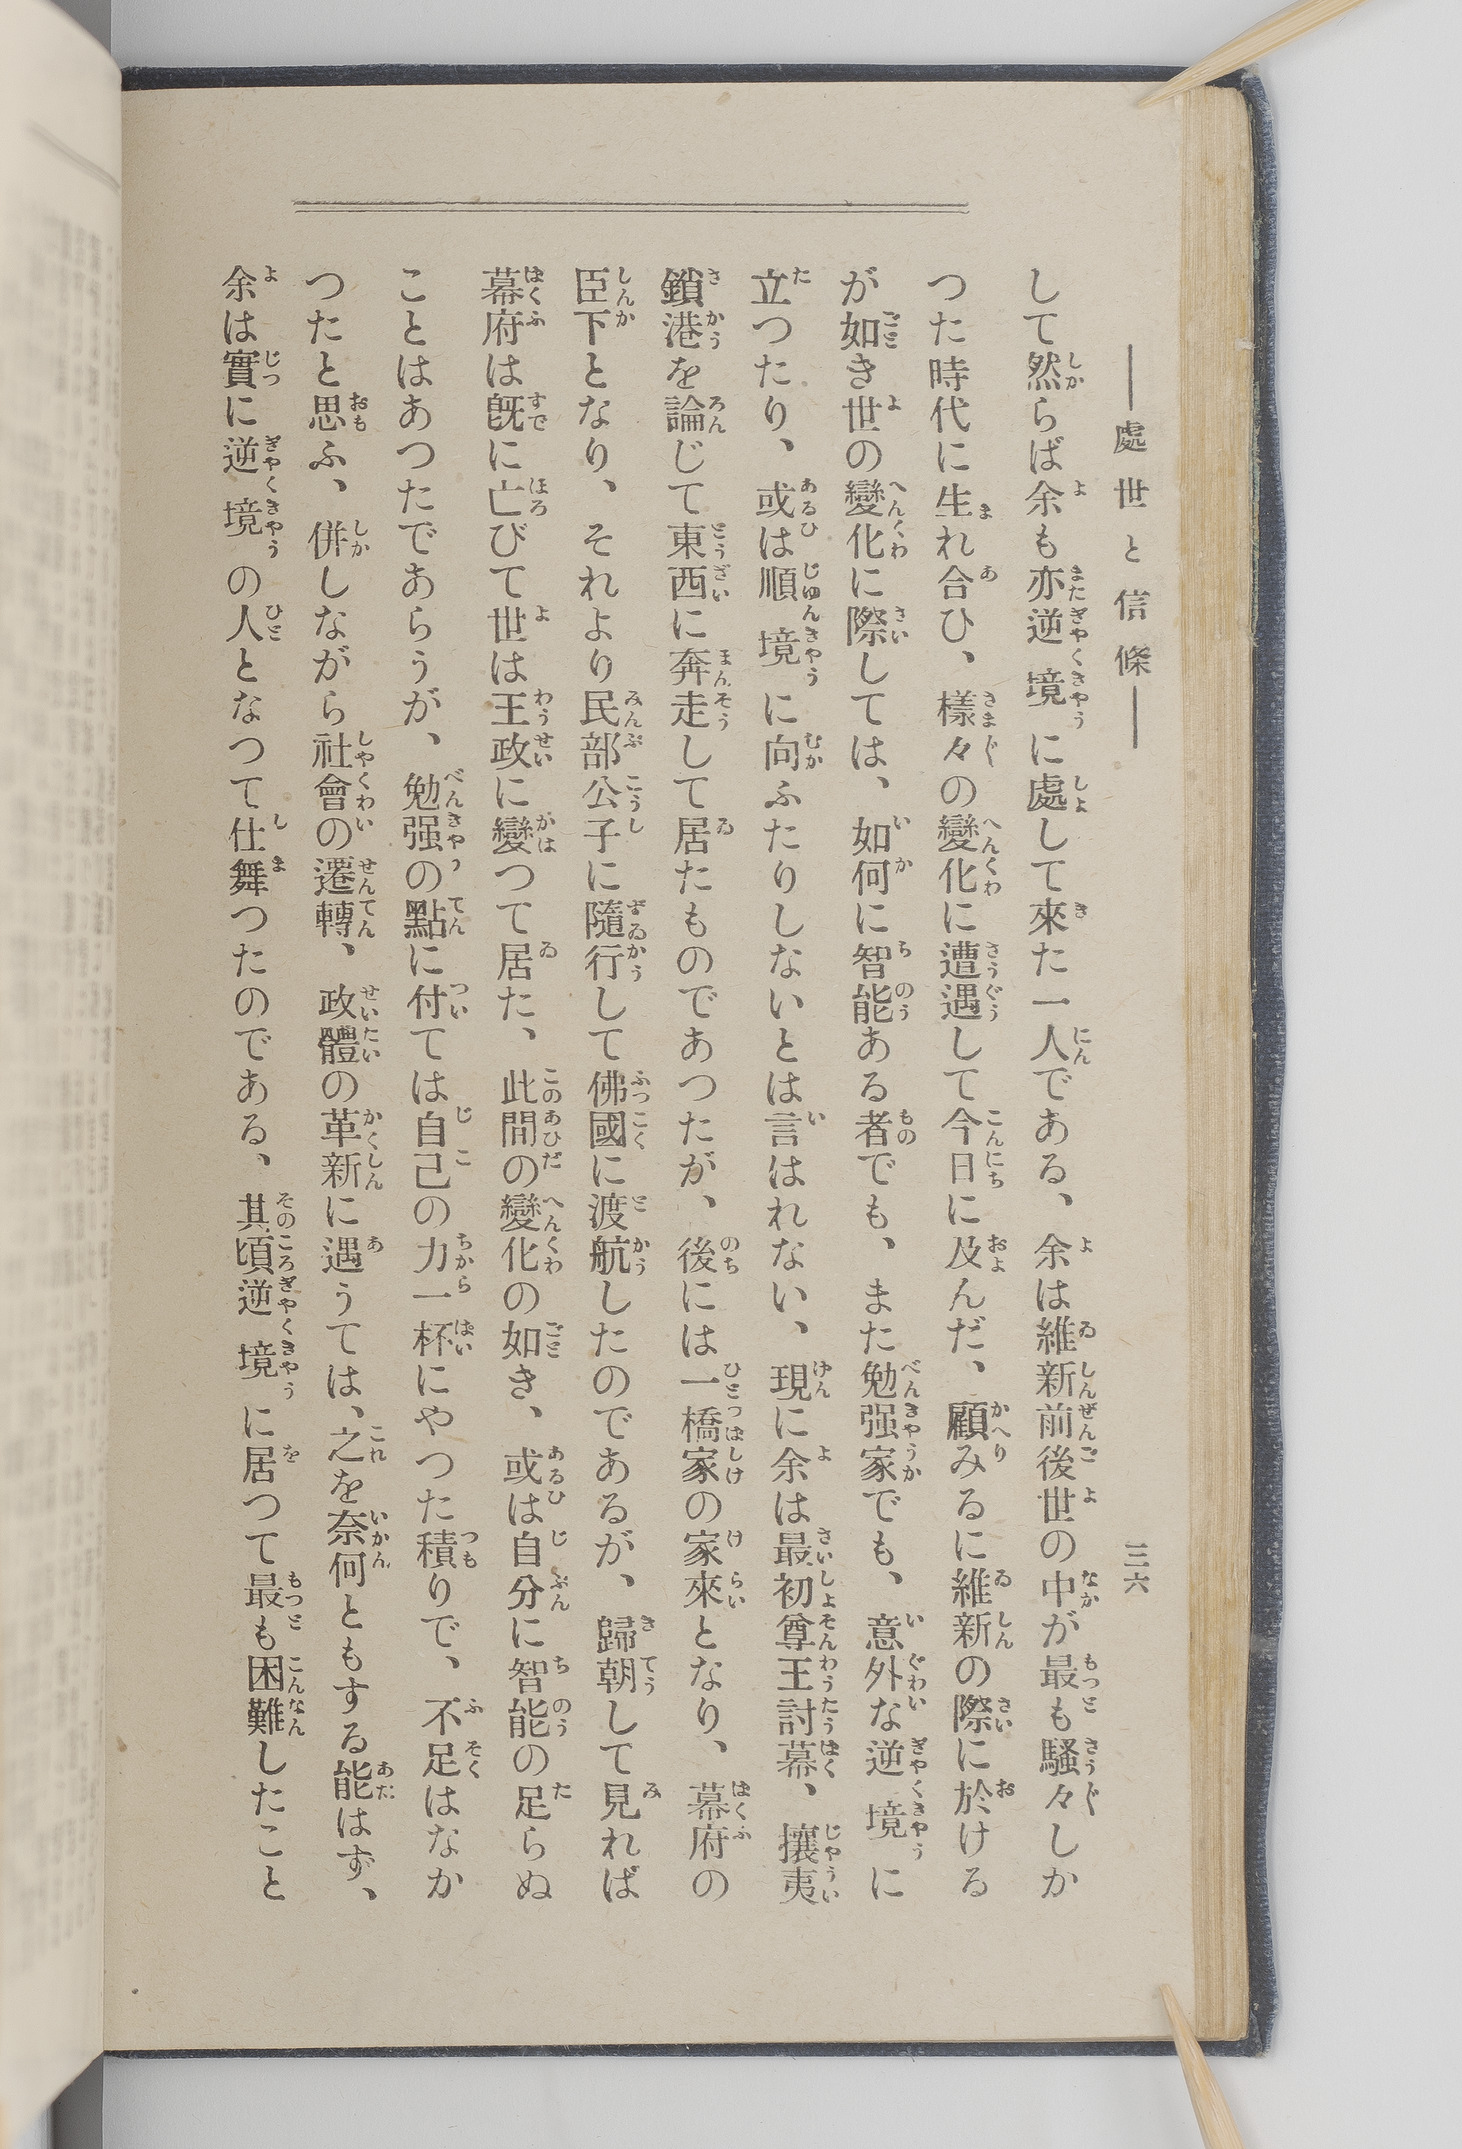 ──處世と信條──
三六
して然らば余も亦逆境に處して來た一人である、余は維新前後世の中が最も騷々しか
つた時代に生れ合ひ、樣々の變化に遭遇して今日に及んだ、顧みるに維新の際に於ける
が如き世の變化に際しては、如何に智能ある者でも、また勉强家でも、意外な逆境に
立つたり、或は順境に向ふたりしないとは言はれない、現に余は最初尊王討幕、攘夷
鎖港を論じて東西に奔走して居たものであつたが、後には一橋家の家來となり、幕府の
臣下となり、それより民部公子に隨行して佛國に渡航したのであるが、歸朝して見れば
幕府は旣に亡びて世は王政に變つて居た、此間の變化の如き、或は自分に智能の足らぬ
ことはあつたであらうが、勉强の點に付ては自己の力一杯にやつた積りで、不足はなか
つたと思ふ、併しながら社會の遷轉、政體の革新に遇うては、之を奈何ともする能はず、
余は實に逆境の人となつて仕舞つたのである、其頃逆境に居つて最も困難したこと